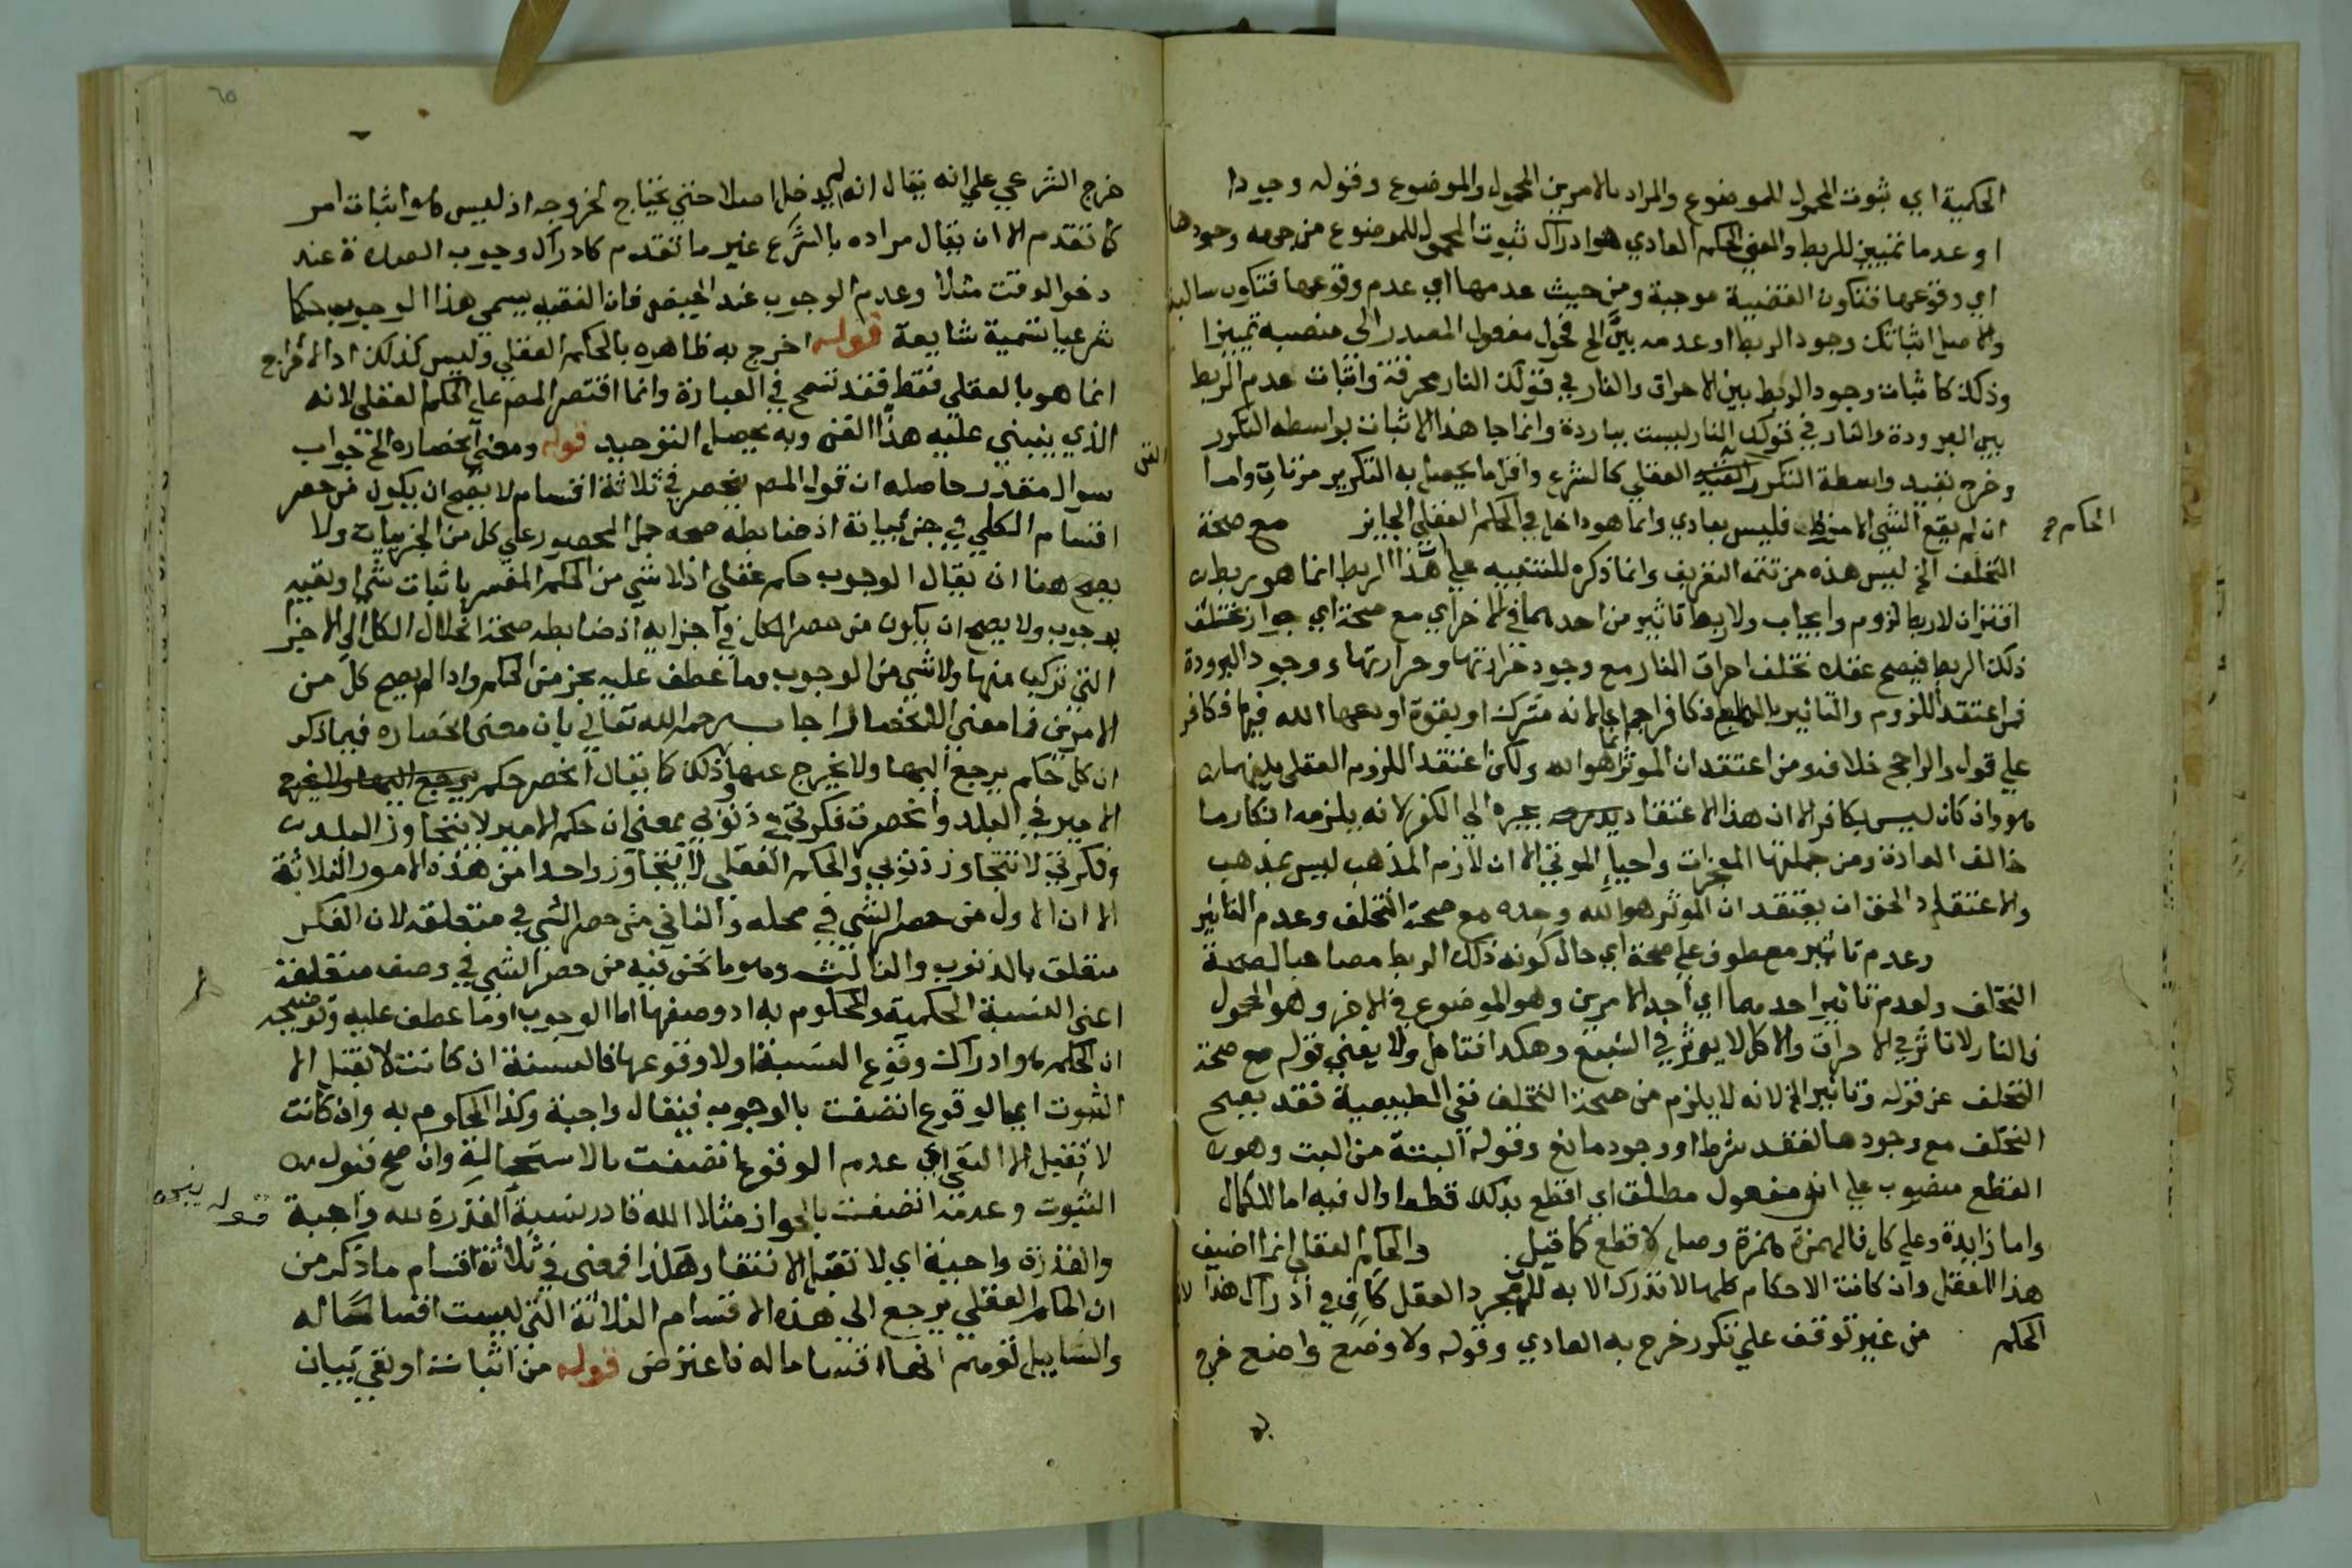 الحكمية اي ثبوت المحمول للموضوع والمراد بالامرين المحمول والموضوع وقوله وجودا
او عدما تمييز للربط والمعني الحكم العادي هو ادراك ثبوت المحمول للموضوع من جهة وجودها
اي وقوعها فتكون القضية موجبة ومن حيث عدمها اي عدم وقوعها فتكون سالبة
والاصل اثباتك وجود الربط او عدمه بين الخ فحول مفعول المصدر الي منصبه تمييزا
وذلك كاثبات وجود الربط بين الاحراق والنار في قولك النار محرقة واثبات عدم الربط
بين البرودة والنار في قولك النار ليست بباردة وانما جا هذا الاثبات بواسطه التكرر
وخرج بقيد واسطة التكرر العقلي كالشرع واقل ما يحصل به التكرير مرتان واما
ان لم يقع الشي الا مرة فليس بعادي وانما هو داخل في الحكم العقلي الجايز مع صحة
الحكم
التخلف الخ ليس هذه من تتمه التعريف وانما ذكره للتنبيه علي ان هذا الربط انما هو ربط
اقتران لا ربط لزوم وايجاب ولا ربط تاثير من احدهما في الاخر اي مع صحة اي جواز تخلف
ذلك الربط فيصح عقلا تخلف احراق النار مع وجود حرارتها و وجود البرودة
فمن اعتقد اللزوم والتاثير بالطبع فكافر اجماعا لانه مشرك او بقوة اودعها الله فيها فكافر
علي قول والراجح خلافه ومن اعتقد ان الموثر هو الله ولكن اعتقد اللزوم العقلي بينهما
وان كان ليس بكافر الا ان هذا الاعتقاد يجره الي الكفر لانه يلزمه انكار ما
خالف العادة ومن جملتها المعجزات واحيا الموتي الا ان لازم المذهب ليس بمذهب
والاعتقاد الحق ان يعتقد ان الموثر هو الله وحده مع صحة التخلف وعدم التاثير
وعدم تاثير معطوف علي صحة اي حال كونه ذلك الربط مصاحبا لصحة
التخلف ولعدم تاثير احدهما اي احد الامرين وهو الموضوع في الاخر وهو المحمول
فالنار لا تاثر في الاحراق والاكل لا يوثر في الشبع وهكذا فتامل ولا يغني قوله مع صحة
التخلف عن قوله وتاثير الخ لانه لا يلزم من صحة التخلف نفي الطبيعية فقد يصح
التخلف مع وجودها لفقد شرط او وجود مانع وقوله البتة من البت وهو
القطع منصوب علي انه مفعول مطلق اي اقطع بذلك قطعا وال فيه اما للكمال
واما زايدة وعلي كل فالهمزة همزة وصل لا قطع كما قيل. والحكم العقلي انما اضيف
هذا للعقل وان كانت الاحكام كلها لا تدرك الا به لان مجرد العقل كاف في ادراك هذا
الحكم من غير توقف علي تكرر خرج به العادي وقوله ولا وضع واضع خرج
خرج الشرعي علي انه يقال انه لم يدخل اصلا حتي يحتاج لخروجه اذ ليس هو اثبات امر
كما تقدم الا ان يقال مراده بالشرع غير ما تقدم كادراك وجوب الصلاة عند
دخول الوقت مثلا وعدم الوجوب عند الحيض فان الفقيه يسمي هذا الوجوب حكما
شرعيا تسمية شايعة قوله اخرج به ظاهره بالحكم العقلي وليس كذلك اذ الاخراج
انما هو بالعقلي فقط فقد تسمح في العبارة وانما اقتصر المصم علي الحكم العقلي لانه
الذي ينبني عليه هذا الفن وبه يحصل التوحيد قوله ومعني انحصاره الخ جواب
الفن
سوال مقدر حاصله ان قول المصم ينحصر في ثلاثة اقسام لا يصح ان يكون من حصر
اقسام الكلي في جزئيياته اذ ضابطه صحه حمل المحصور علي كل من الجزييات ولا
يصح هنا ان يقال الوجوب حكم عقلي اذ لا شي من الحكم المفسر باثبات شي او نفيه
بوجوب ولا يصح ان يكون من حصر الكل في اجزايه اذ ضابطه صحة انحلال الكل الي الاجزا
التي تركب منها ولا شي من الوجوب وما عطف عليه بجز من الحكم واذا لم يصح كل من
الامرين فما معني الانحصار اجاب رحمه الله تعالي بان معني انحصاره فيما ذكر
ان كل حكم يرجع اليها ولا يخرج عنها وذلك كما يقال انحصر حكم يرجع اليها ولا يخرج
الامير في البلد وانحصرت فكرتي في ذنوبي بمعني ان حكم الامير لا يتجاوز البلد
وفكرتي لا تتجاوز ذنوبي والحكم العقلي لا يتجاوز واحدا من هذه الامور الثلاثة
الا ان الاول من حصر الشي في محله والثاني من حصر الشي في متعلقه لان الفكر
متعلق بالذنوب والثالث وهو ما نحن فيه من حصر الشي في وصف متعلقه
اعني النسبة الحكمية والمحكوم به اذ وصفها اما الوجوب او ما عطف عليه وتوضيحه
ان الحكم هو ادراك وقوع النسبة او لا وقوعها فالنسبة ان كانت لا تقبل الا
الثبوت اي الوقوع اتصفت بالوجوب فيقال واجبة وكذا المحكوم به وان كانت
لا تقبل الا النفي اي عدم الوقوع اتصفت بالاستحالة وان صح قبول
الثبوت وعدمه اتصفت بالجواز مثلا الله قادر نسبة القدرة لله واجبة
والقدرة واجبة اي لا تقبل الانتفا وهكذا فمعني في ثلاثة اقسام ما ذكر من
ان الحكم العقلي يرجع الي هذه الاقسام الثلاثة التي ليست اقساما له
والسايل توهم انها اقساما له فاعترض قوله من اثبات او نفي بيان